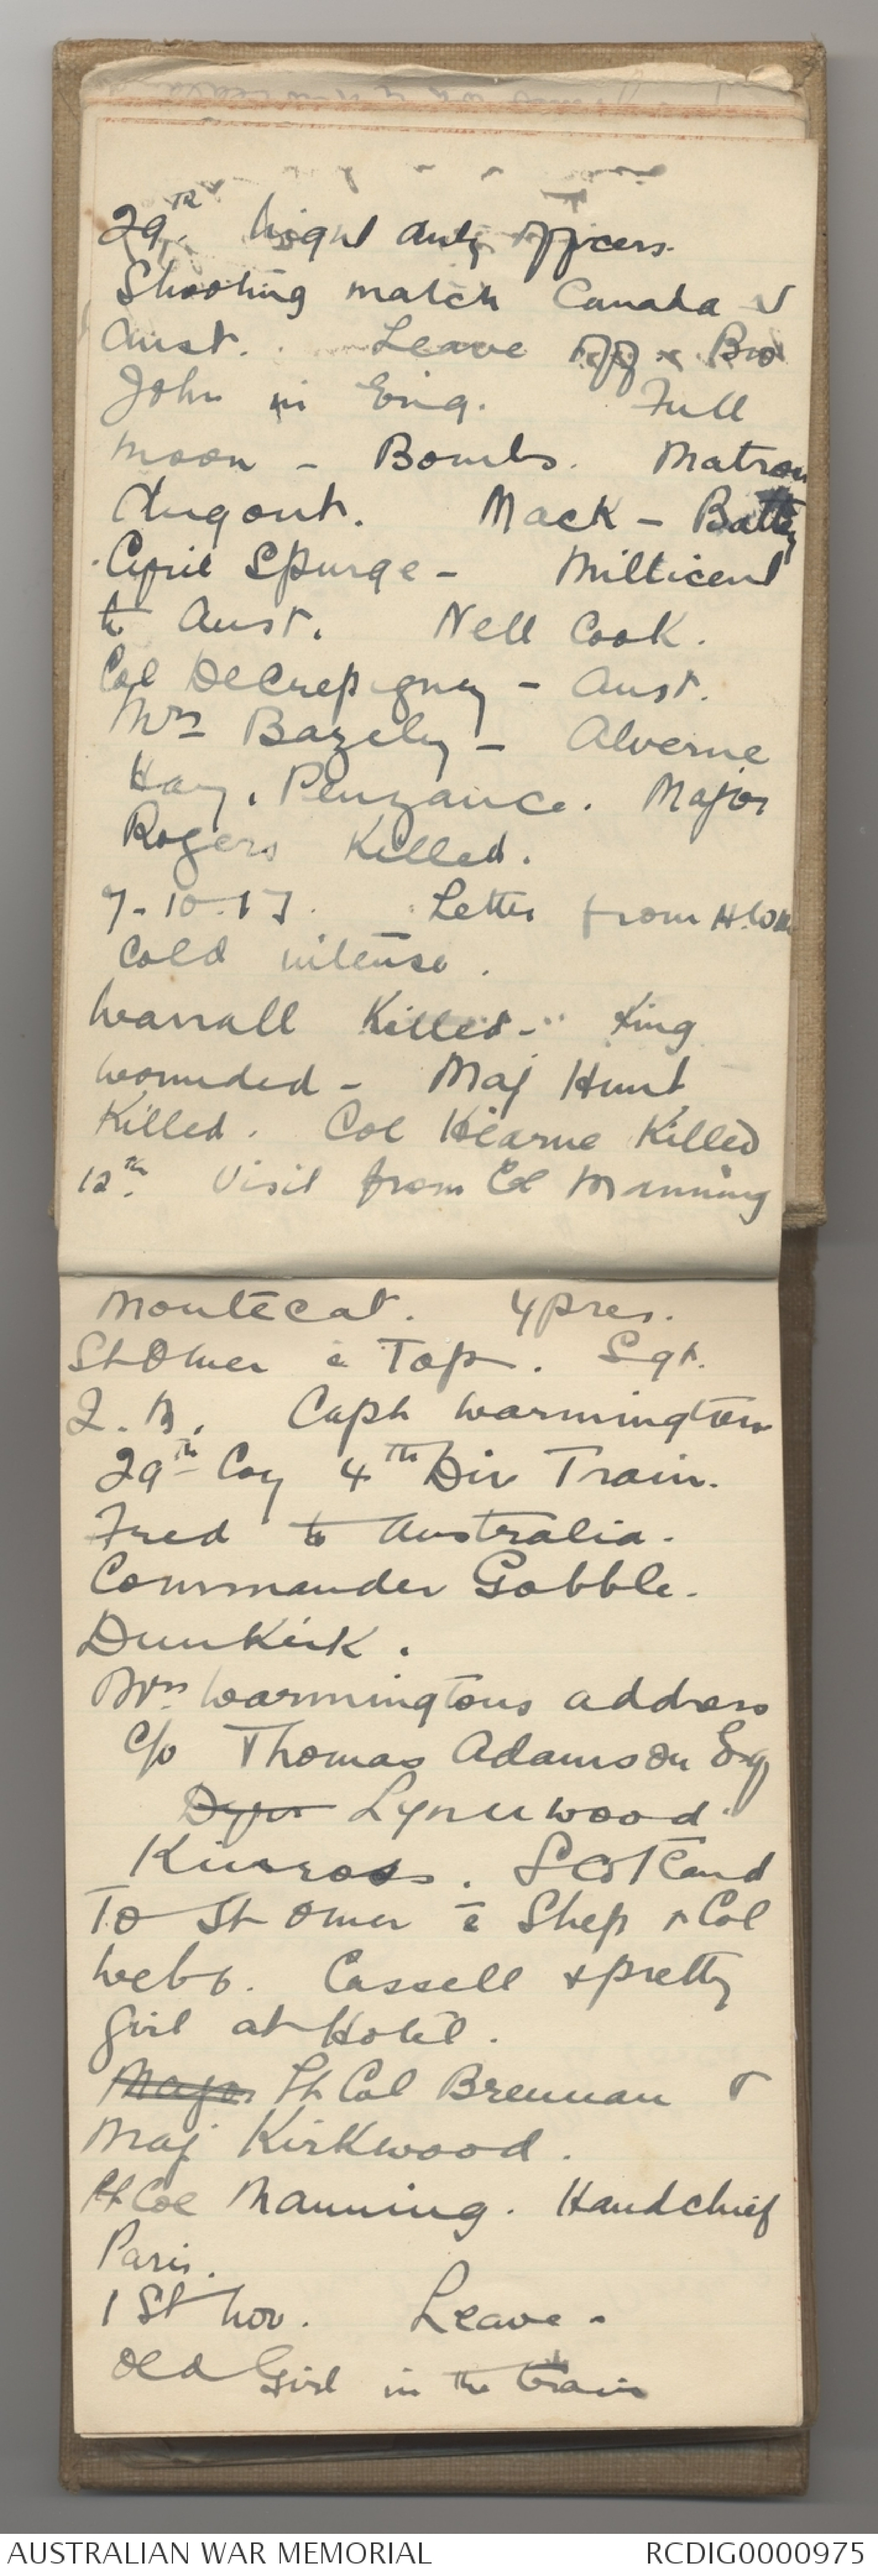 29th. Night duty officers.
Shooting match Canada v
Aust. Leave off. Bro
John in Eng. Full
moon - Bombs. Matron
dugout. Mack - Batty
April Spurge - Millicent
to Aust. Nell Cook.
Col DeCrepigney - Aust.
Mrs Bazely - Alverne
Hay, Penzance. Major
Rogers Killed.
7-10-17. Letter from
Cold intense.
Warrall Killed - King
wounded - Maj Hunt
Killed. Col Hearne Killed
12th. Visit from Col Manning
Montecat. 4pres.
St Omer c Tap. Sgt.
Capt Warmington
29th Coy 4th Div Train.
Fred to Australia.
Commander Gobble.
Dunkirk.
Mrs Warmingtons address
c/o Thomas Adamson Esq
Lynnwood
Kinross. Scotland
To St Omer c Shep & Col
Webb. Cassell & pretty
girl at Hotel.
Major Lt Col Brennan &
Maj Kirkwood.
Lt Col Manning. Handchief
Paris.
1st Nov. Leave -
Old Girl in the train
AUSTRALIAN WAR MEMORIAL
RCDIG0000975